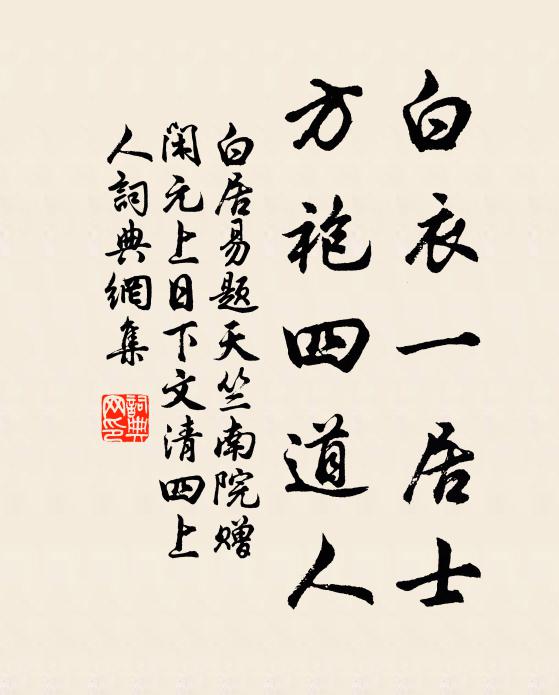 白衣一居士
方袍四道人
白居易題天竺南院赠
闲元上日下文清四上
人詞典網集
詞典网印